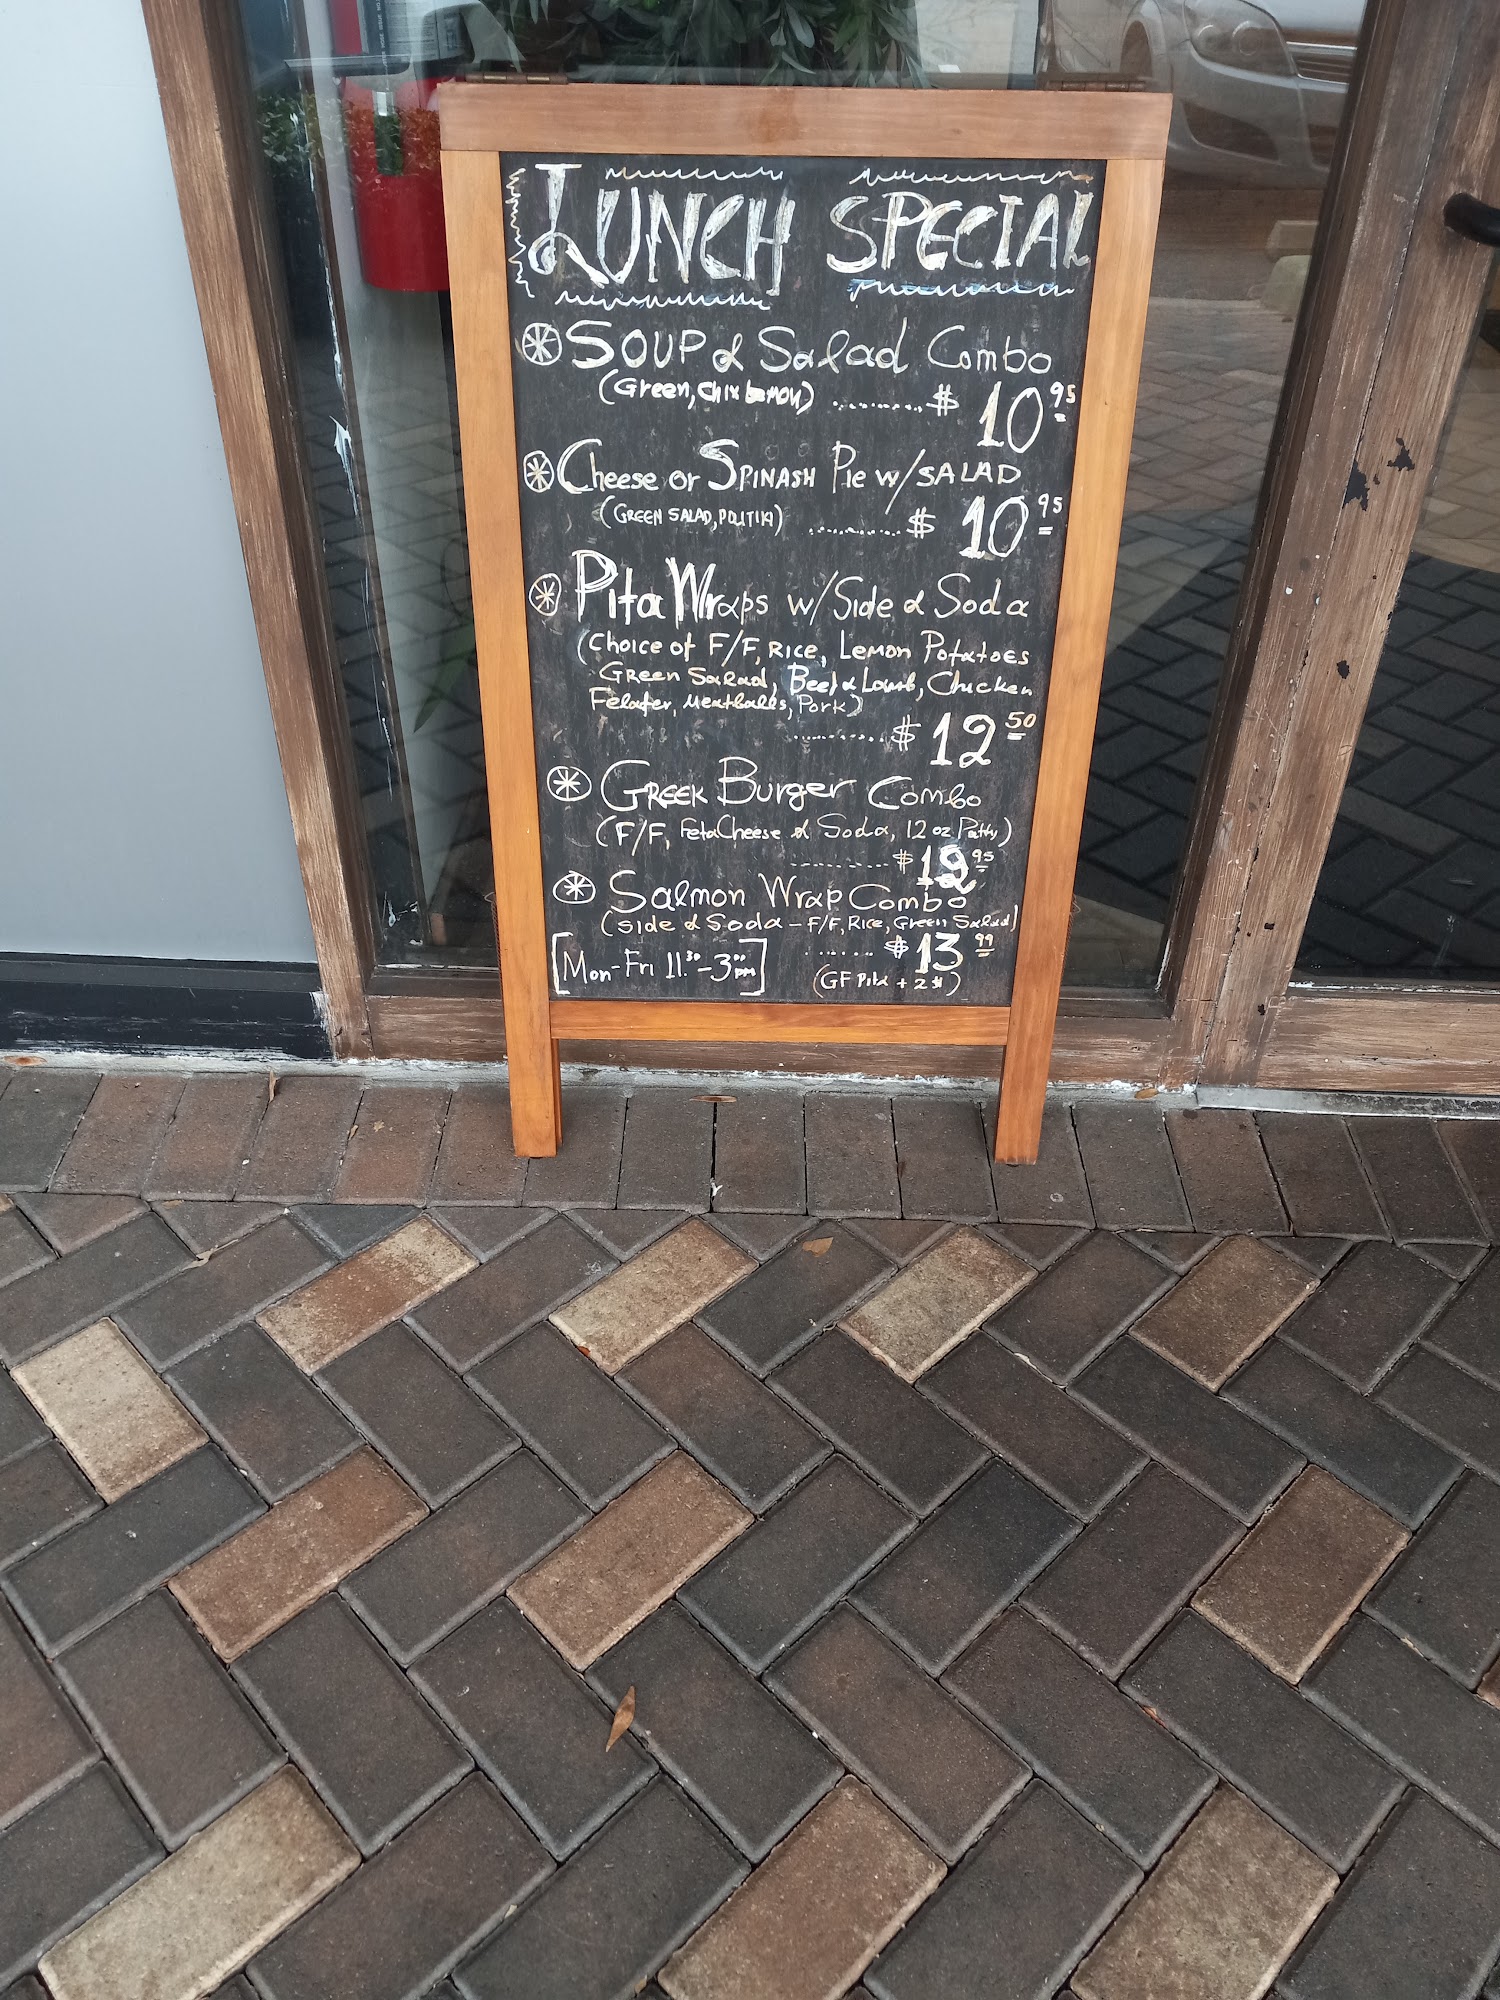 LUNCH SPECIAL
SOUP & Salad Combo
(Green, Chix Lemon) .......... $ 10 95
Cheese or SPINASH Pie w/SALAD
(GREEN SALAD, POLITIKI) .......... $ 10 95
Pita Wraps w/Side & Soda
(Choice of F/F, RICE, Lemon Potatoes
Green Salad, Beef & Lamb, Chicken
Felafer, Meatballs, Pork)
.......... $ 12 50
GREEK Burger Combo
(F/F, Feta Cheese & Soda, 12 oz Patty)
.......... $ 95
Salmon Wrap Combo
(Side & Soda - F/F, Rice, Green Salad)
....... $ 13 99
[Mon-Fri 11.30-3.00PM] (GF Pita + 2$)